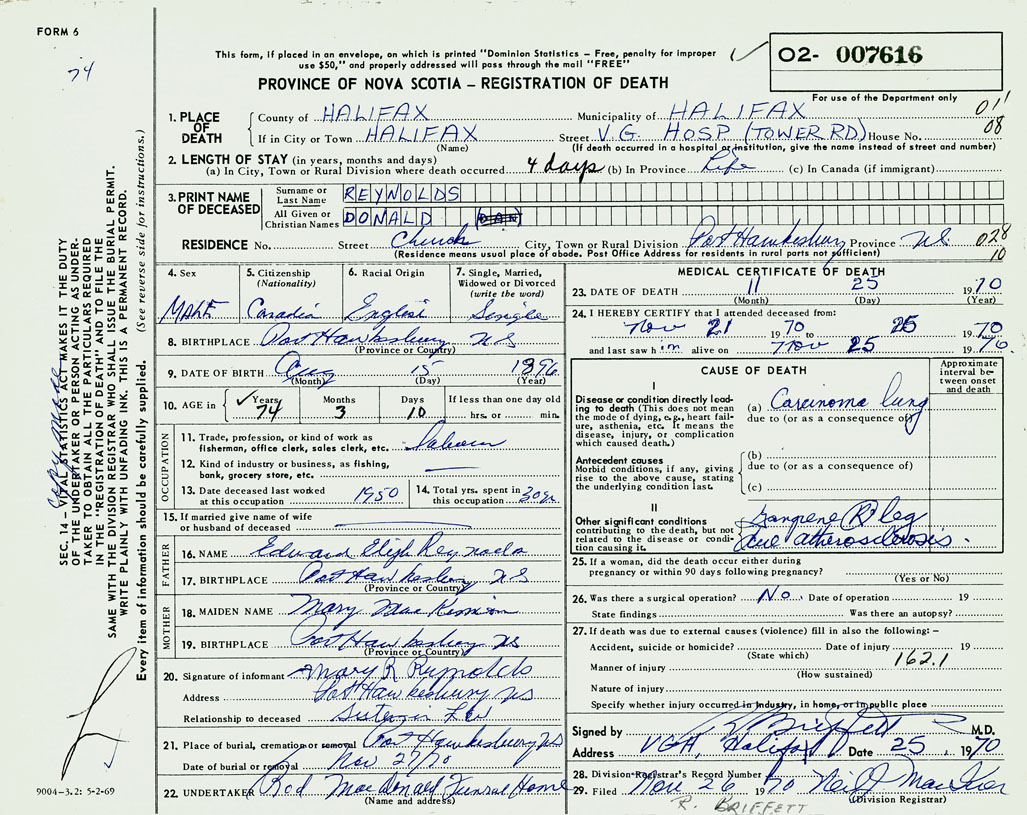 FORM 6
74
This form, if placed in an envelope, on which is printed "Dominion Statistics – Free, penalty for improper
use $50," and properly addressed will pass through the mail "FREE"
02- 007616
PROVINCE OF NOVA SCOTIA – REGISTRATION OF DEATH
For use of the Department only
1. PLACE OF DEATH
County of HALIFAX Municipality of HALIFAX 01'
If in City or Town HALIFAX Street V.G. HOSP (TOWER RD) House No. 08
(Name) (If death occurred in a hospital or institution, give the name instead of street and number)
2. LENGTH OF STAY (in years, months and days)
(a) In City, Town or Rural Division where death occurred 4 days (b) In Province Life (c) In Canada (if immigrant)
3. PRINT NAME OF DECEASED
Surname or Last Name REYNOLDS
All Given or Christian Names DONALD (DAN)
RESIDENCE No. Street Church City, Town or Rural Division Port Hawkesbury Province N.S. 028
(Residence means usual place of abode. Post Office Address for residents in rural parts not sufficient) 10
4. Sex MALE
5. Citizenship (Nationality) Canadian
6. Racial Origin English
7. Single, Married, Widowed or Divorced (write the word) Single
8. BIRTHPLACE Port Hawkesbury NS
(Province or Country)
9. DATE OF BIRTH Aug 15 1896
(Month) (Day) (Year)
10. AGE in Years 74 Months 3 Days 10 If less than one day old hrs. or min.
OCCUPATION
11. Trade, profession, or kind of work as
fisherman, office clerk, sales clerk, etc.
12. Kind of industry or business, as fishing,
bank, grocery store, etc. —
13. Date deceased last worked at this occupation 1950
14. Total yrs. spent in this occupation 30 yrs
15. If married give name of wife
or husband of deceased —
FATHER
16. NAME Edward Elijh Reynolds
17. BIRTHPLACE Port Hawkesbury NS
(Province or Country)
MOTHER
18. MAIDEN NAME Mary Mac
19. BIRTHPLACE Port Hawkesbury NS
(Province or Country)
20. Signature of informant Mary R Reynolds
Address Port Hawkesbury NS
Relationship to deceased Sister in Law
21. Place of burial, cremation or removal Port Hawkesbury NS
Date of burial or removal Nov 27/70
22. UNDERTAKER Rod MacDonald Funeral Home
(Name and address)
MEDICAL CERTIFICATE OF DEATH
23. DATE OF DEATH 11 25 1970
(Month) (Day) (Year)
24. I HEREBY CERTIFY that I attended deceased from:
Nov 21 1970 to 25 1970
and last saw him alive on Nov 25 1970
CAUSE OF DEATH
Approximate interval between onset and death
I
Disease or condition directly leading to death (This does not mean the mode of dying, e.g., heart failure, asthenia, etc. It means the disease, injury, or complication which caused death.)
(a) Carcinoma lung
due to (or as a consequence of)
Antecedent causes
Morbid conditions, if any, giving rise to the above cause, stating the underlying condition last.
(b)
due to (or as a consequence of)
(c)
II
Other significant conditions contributing to the death, but not related to the disease or condition causing it.
Gangrene (R) leg
due atherosclerosis.
25. If a woman, did the death occur either during
pregnancy or within 90 days following pregnancy?
(Yes or No)
26. Was there a surgical operation? No. Date of operation 19
State findings Was there an autopsy?
27. If death was due to external causes (violence) fill in also the following: –
Accident, suicide or homicide? Date of injury 19
(State which)
Manner of injury 162.1
(How sustained)
Nature of injury
Specify whether injury occurred in industry, in home, or in public place
Signed by R Brieffett M.D.
Address VGH, Halifax Date 25 1970
28. Division Registrar's Record Number
29. Filed Nov 26 1970 Neil
(Division Registrar)
R. BRIEFFETT
SEC. 14 – VITAL STATISTICS ACT MAKES IT THE DUTY
OF THE UNDERTAKER OR PERSON ACTING AS UNDER-
TAKER TO OBTAIN ALL THE PARTICULARS REQUIRED
IN THE "REGISTRATION OF DEATH" AND TO FILE THE
SAME WITH THE DIVISION REGISTRAR WHO SHALL ISSUE THE BURIAL PERMIT.
WRITE PLAINLY WITH UNFADING INK. THIS IS A PERMANENT RECORD.
Every item of information should be carefully supplied. (See reverse side for instructions.)
9004–3.2: 5-2-69